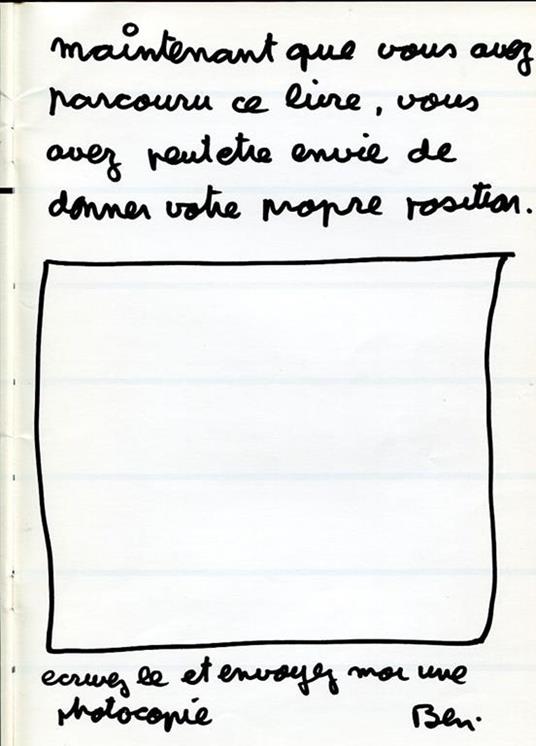 maintenant que vous avez
parcouru ce livre, vous
avez peut etre envie de
donner votre propre position.
ecrivez le et envoyez moi une
photocopie Ben.